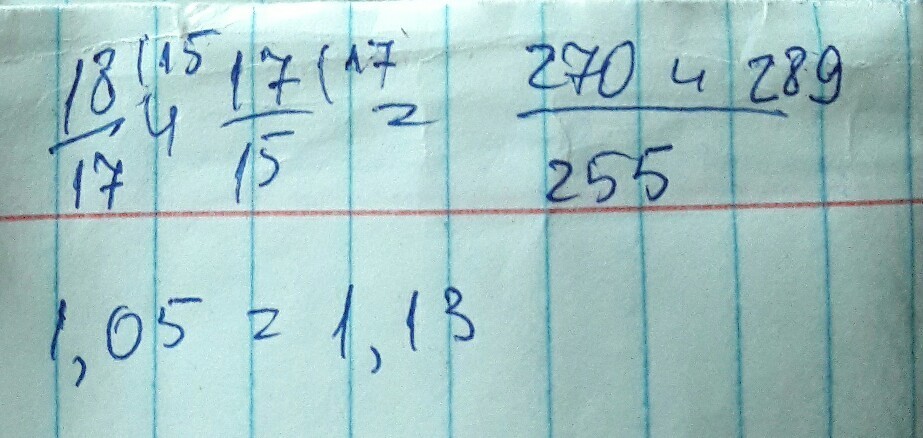 18(15 и 17(17 = 270 и 289
17 15 255
1,05 = 1,13